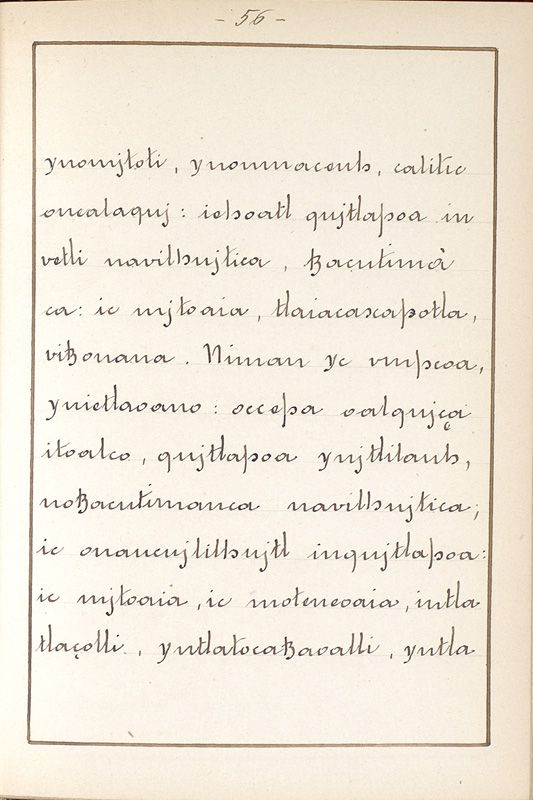 - 56 -
ynomjtoti, ynonmaceuh, calitic
oncalaquj: iehoatl qujtlapoa in
vetli navilhujtica, tzacutimà
ca: ic mjtoaia, tlaiacaxapotla,
vitzonana. Niman yc vmpeoa,
ynietlaoano: occepa oalqujça
itoalco, qujtlapoa ynjtlilauh,
notzacutimanca navilhujtica;
ic onaucujlilhujtl inqujtlapoa:
ic mjtoaia, ic moteneoaia, intla
tlaçolli, yntlatocatzaoalli, yntla